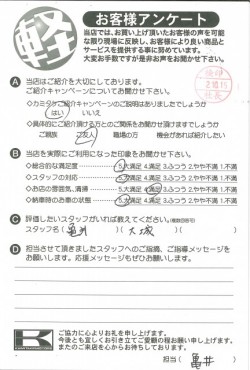 軽
お客様アンケート
当店では、お買い上げ頂いたお客様の声を可能
な限り現場に反映し、お客様により良い商品と
サービスを提供する事に努めています。
大変お手数ですが是非お声をお聞かせ下さい。
A 当店はご紹介を大切にしております。
ご紹介キャンペーンについてお聞かせ下さい。
◇カミタケご紹介キャンペーンのご説明はありましたでしょうか
はい いいえ
◇具体的にご紹介頂ける方とのご関係をお聞かせ頂けますでしょうか
ご親族 ご友人 職場の方 機会があれば紹介したい
B 当店を実際にご利用になった印象をお聞かせ下さい。
◇総合的な満足度 5.大満足 4.満足 3.ふつう 2.やや不満 1.不満
◇スタッフの対応 5.大満足 4.満足 3.ふつう 2.やや不満 1.不満
◇お店の雰囲気、清掃 5.大満足 4.満足 3.ふつう 2.やや不満 1.不満
◇納車時のお車の状態 5.大満足 4.満足 3.ふつう 2.やや不満 1.不満
C 評価したいスタッフがいれば教えてください。(複数回答可)
スタッフ名( 亀井 大城 )
D 担当させて頂きましたスタッフへのご指摘、ご指導メッセージを
お願いします。応援メッセージもぜひお願いします。
K
ご協力に心よりお礼を申し上げます。
今後とも宜しくお引き立てご愛顧の程お願い申し上げます。
またのご来店を心からお待ちしております。
担当( 亀井 )